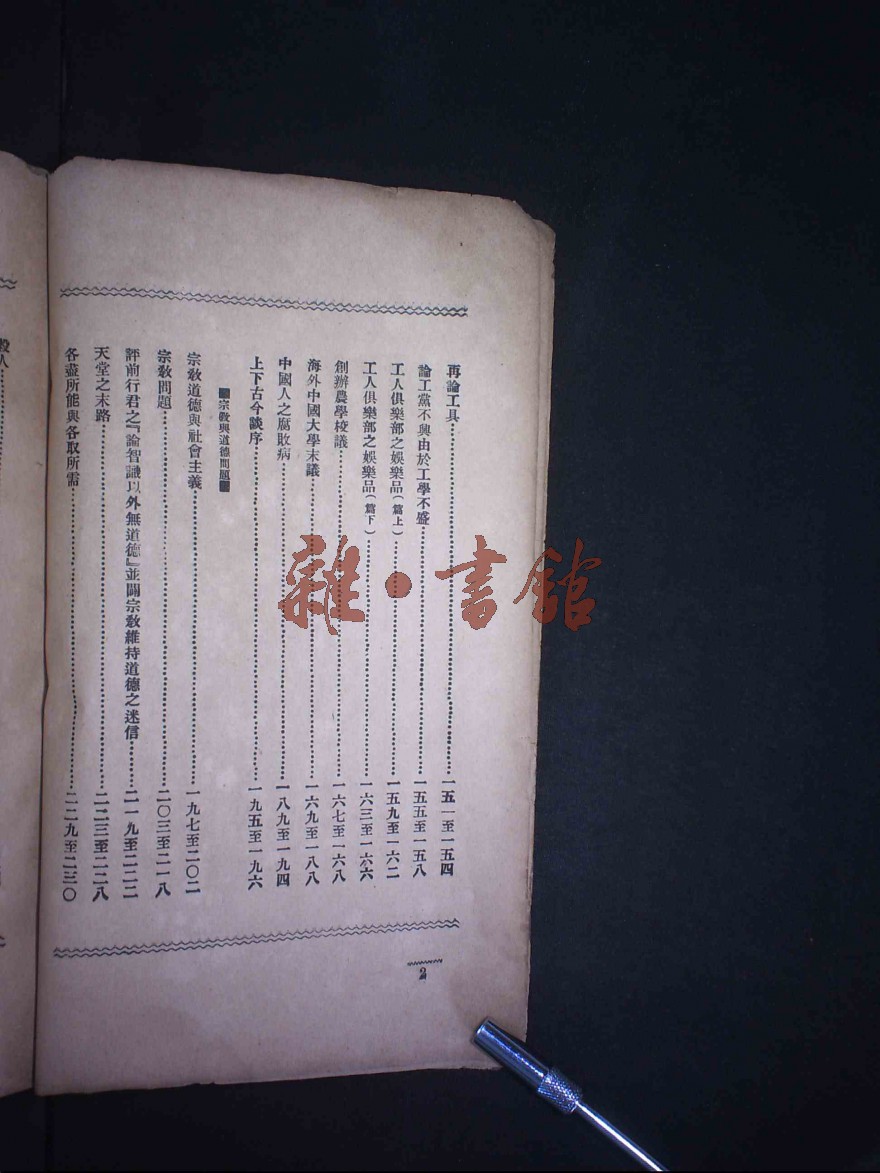 再論工具……一五一至一五四
論工黨不興由於工學不盛……一五五至一五八
工人俱樂部之娛樂品(篇上)……一五九至一六二
工人俱樂部之娛樂品(篇下)……一六三至一六六
創辦農學校議……一六七至一六八
海外中國大學末議……一六九至一八八
中國人之腐敗病……一八九至一九四
上下古今談序……一九五至一九六
■宗教與道德問題■
宗教道德與社會主義……一九七至二〇二
宗教問題……二〇三至二一八
評前行君之『論智識以外無道德』並闢宗教維持道德之迷信……二一九至二二二
天堂之末路……二二三至二二八
各盡所能與各取所需……二二九至二三〇
2
雜·書館